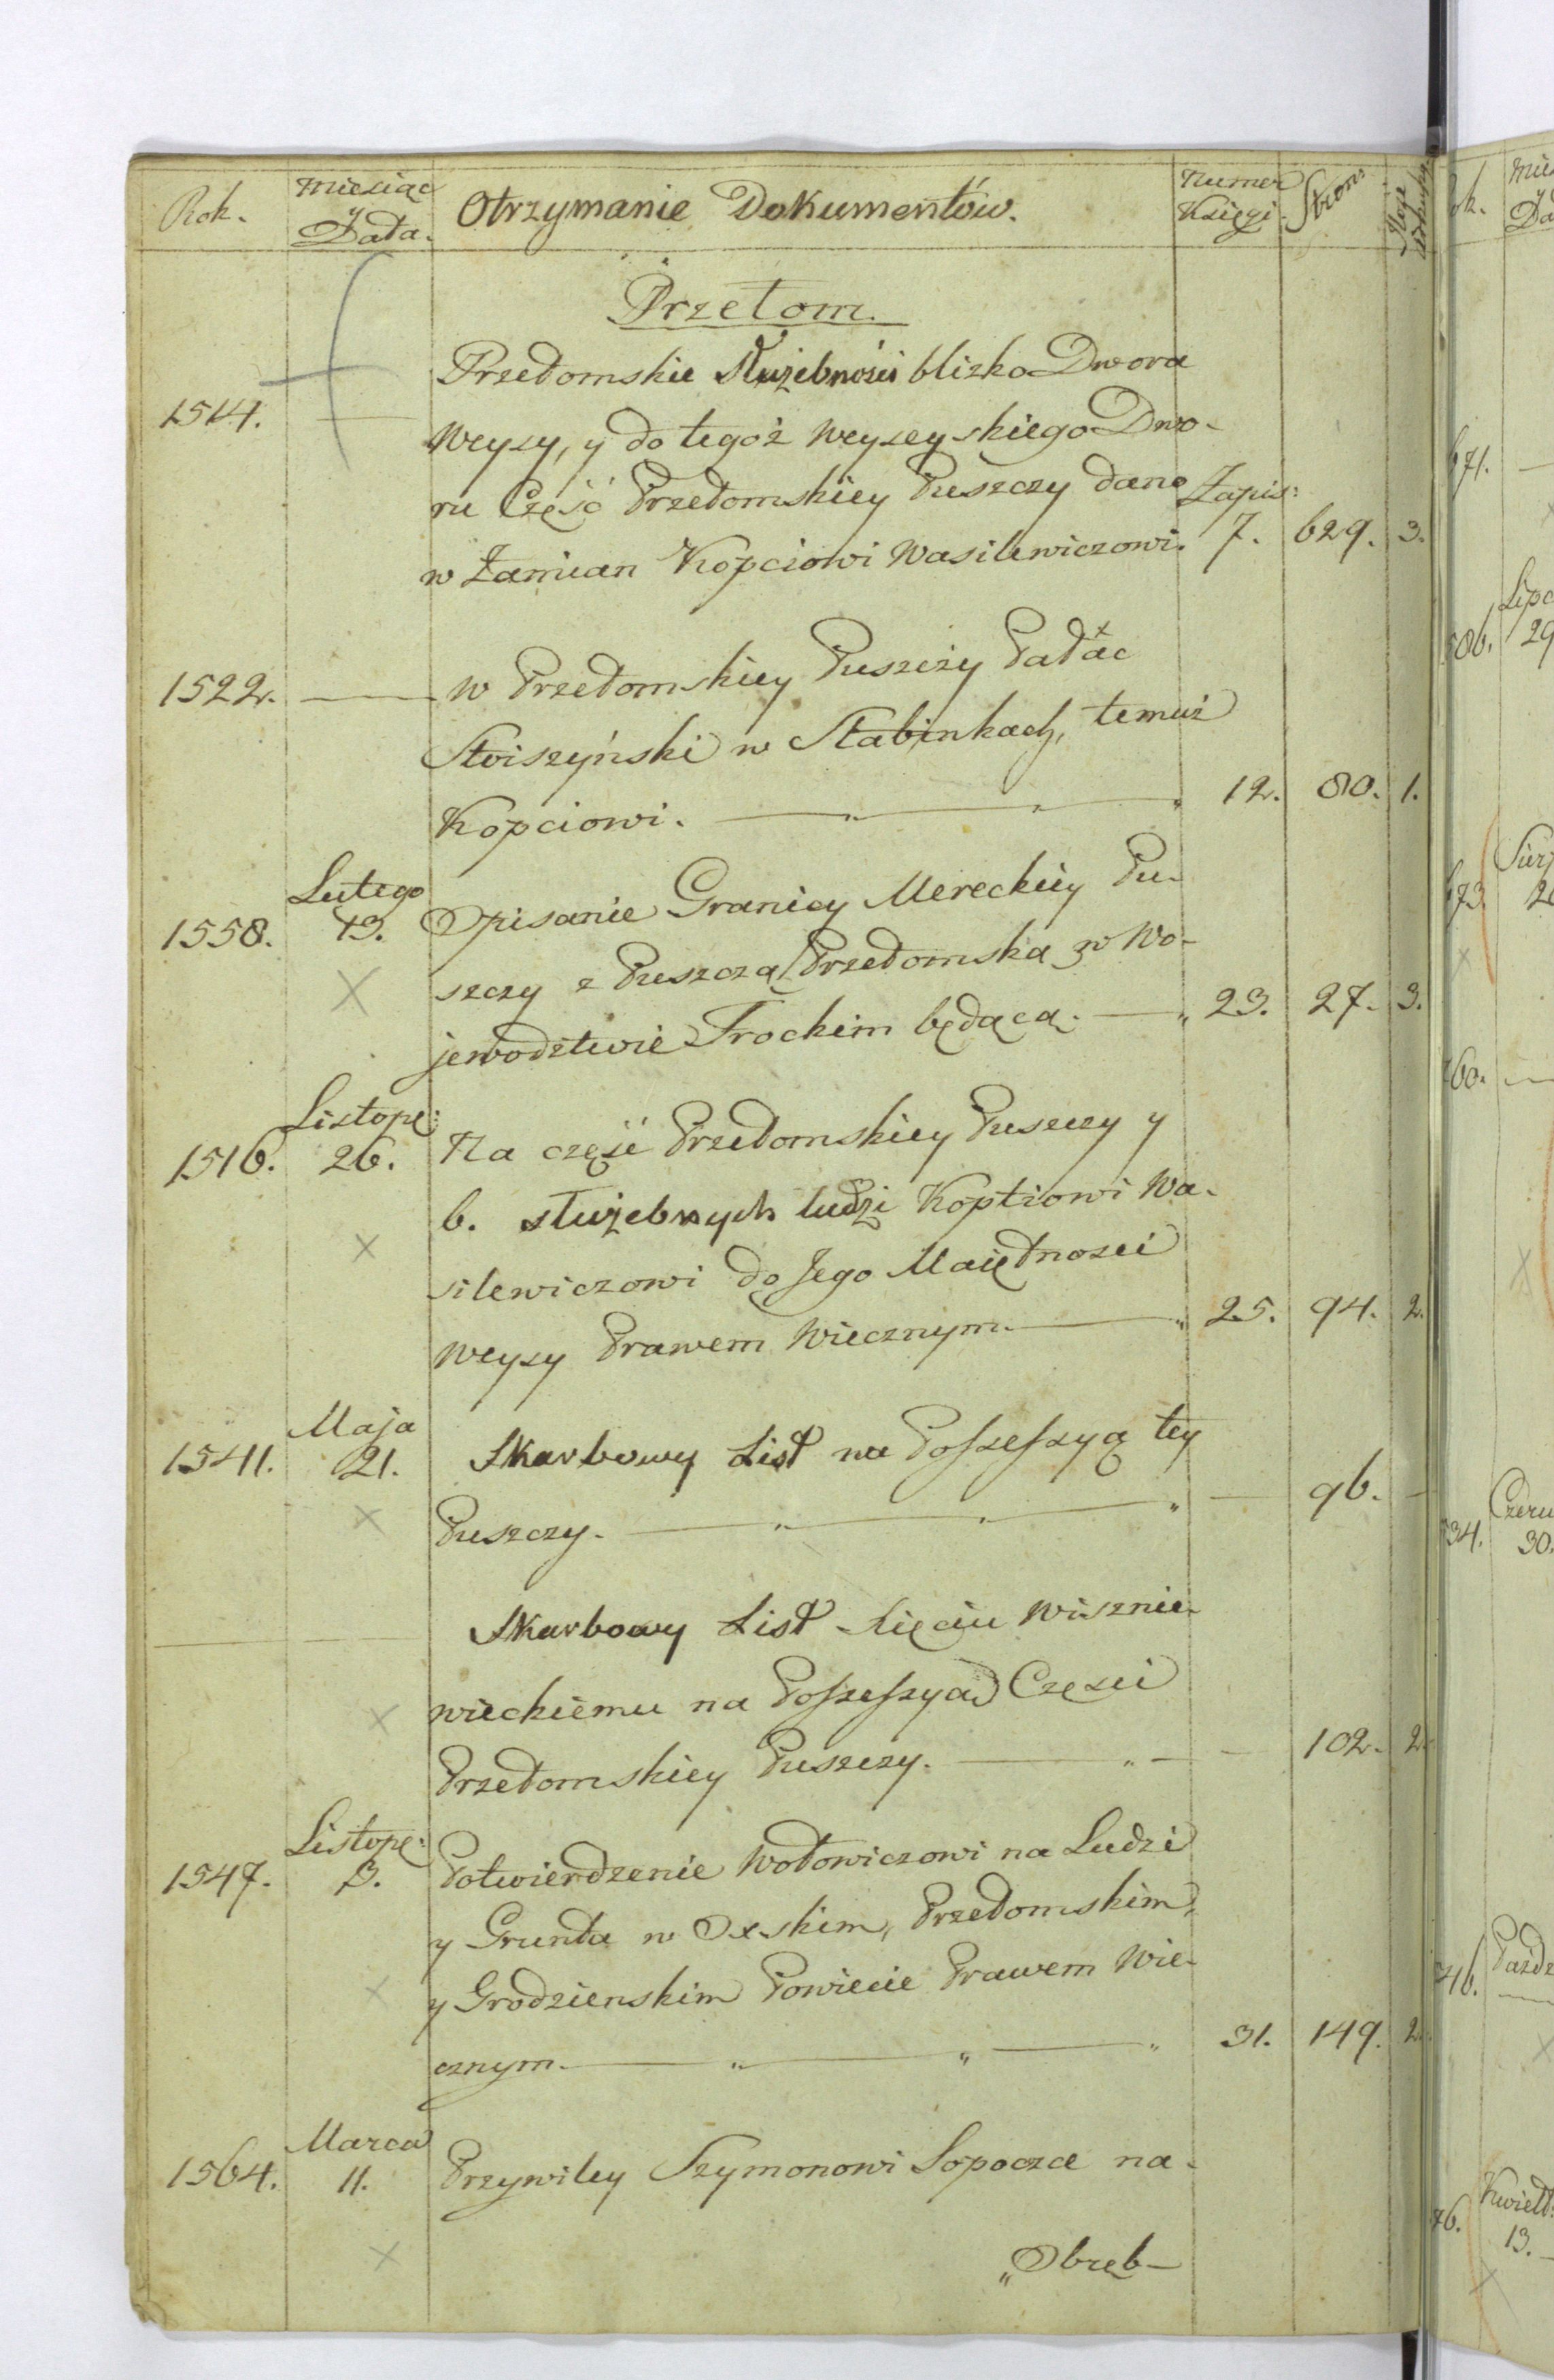 Rok. Miesiąc y Data. Otrzymanie Dokumentów. Numer Księgi Stron:
Przełom.
Przełomskie Służebności blizko Dwora
1514. — Weysy, y do tegoż Weyseyskiego Dwo-
ru Część Przełomskiey Puszczy dane Zapis:
w Zamian Kopciowi Wasilewiczowi. 7. 629. 3.
1522. — w Przełomskiey Puszczy Pałac
Stoiszyński w Stabinkach, temuż
Kopciowi. — " — " — " 12. 80. 1.
Lutego
1558. 13. Opisanie Granicy Mereckiey Pu-
szczy z Puszczą Przełomską w Wo-
jewodztwie Trockim będącą. — " 23. 27. 3.
Listope:
1516. 26. Na część Przełomskiey Puszczy y
6. służebnych ludzi Koptiowi Wa-
silewiczowi do Jego Maiętnosci
Weysy Prawem Wiecznym. — " 25. 94. 2.
Maja
1541. 21. Skarbowy List na Possessyą tey
Puszczy. — " — " — " — 96. —
Skarbowy List Xięciu Wisznie-
wieckiemu na Possessyą Części
Przełomskiey Puszczy. — " — — 102. 2.
Listope:
1547. 3. Potwierdzenie Wołowiczowi na Ludzi
y Grunta w Ox-skim, Przełomskim,
y Grodzienskim Powiecie Prawem Wie-
cznym. — " — " — " 31. 149. 2.
Marca
1564. 11. Przywiley Szymonowi Sopoczce na-
"Obręb—